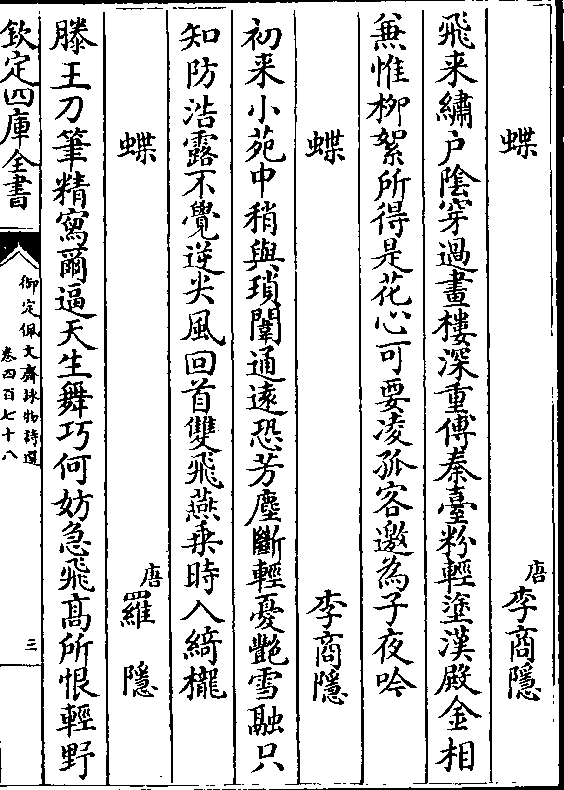 蝶　唐　李商隱
飛来繡户陰穿過畫樓深重傅秦臺粉輕塗漢殿金相
兼惟栁絮所得是花心可要凌孤客邀為子夜吟
蝶　李商隱
初来小苑中稍與瑣闈通逺恐芳塵斷輕憂艶雪融只
知防浩露不覺逆尖風回首雙飛燕乗時入綺櫳
蝶　唐　羅隱
滕王刀筆精寫爾逼天生舞巧何妨急飛髙所恨輕野
欽定四庫全書
御定佩文齋詠物詩選
卷四百七十八
三